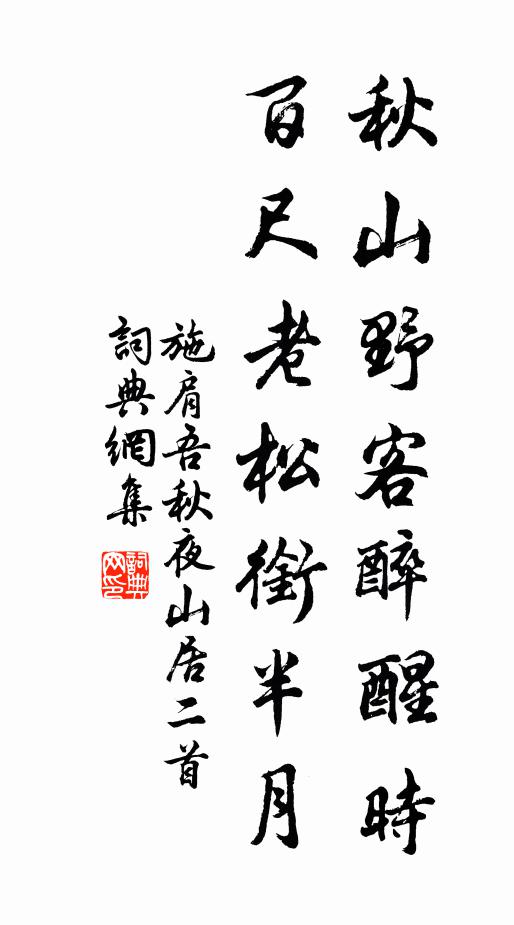 秋山野客醉醒時
百尺老松銜半月
施肩吾秋夜山居二首
詞典網集
詞典網印